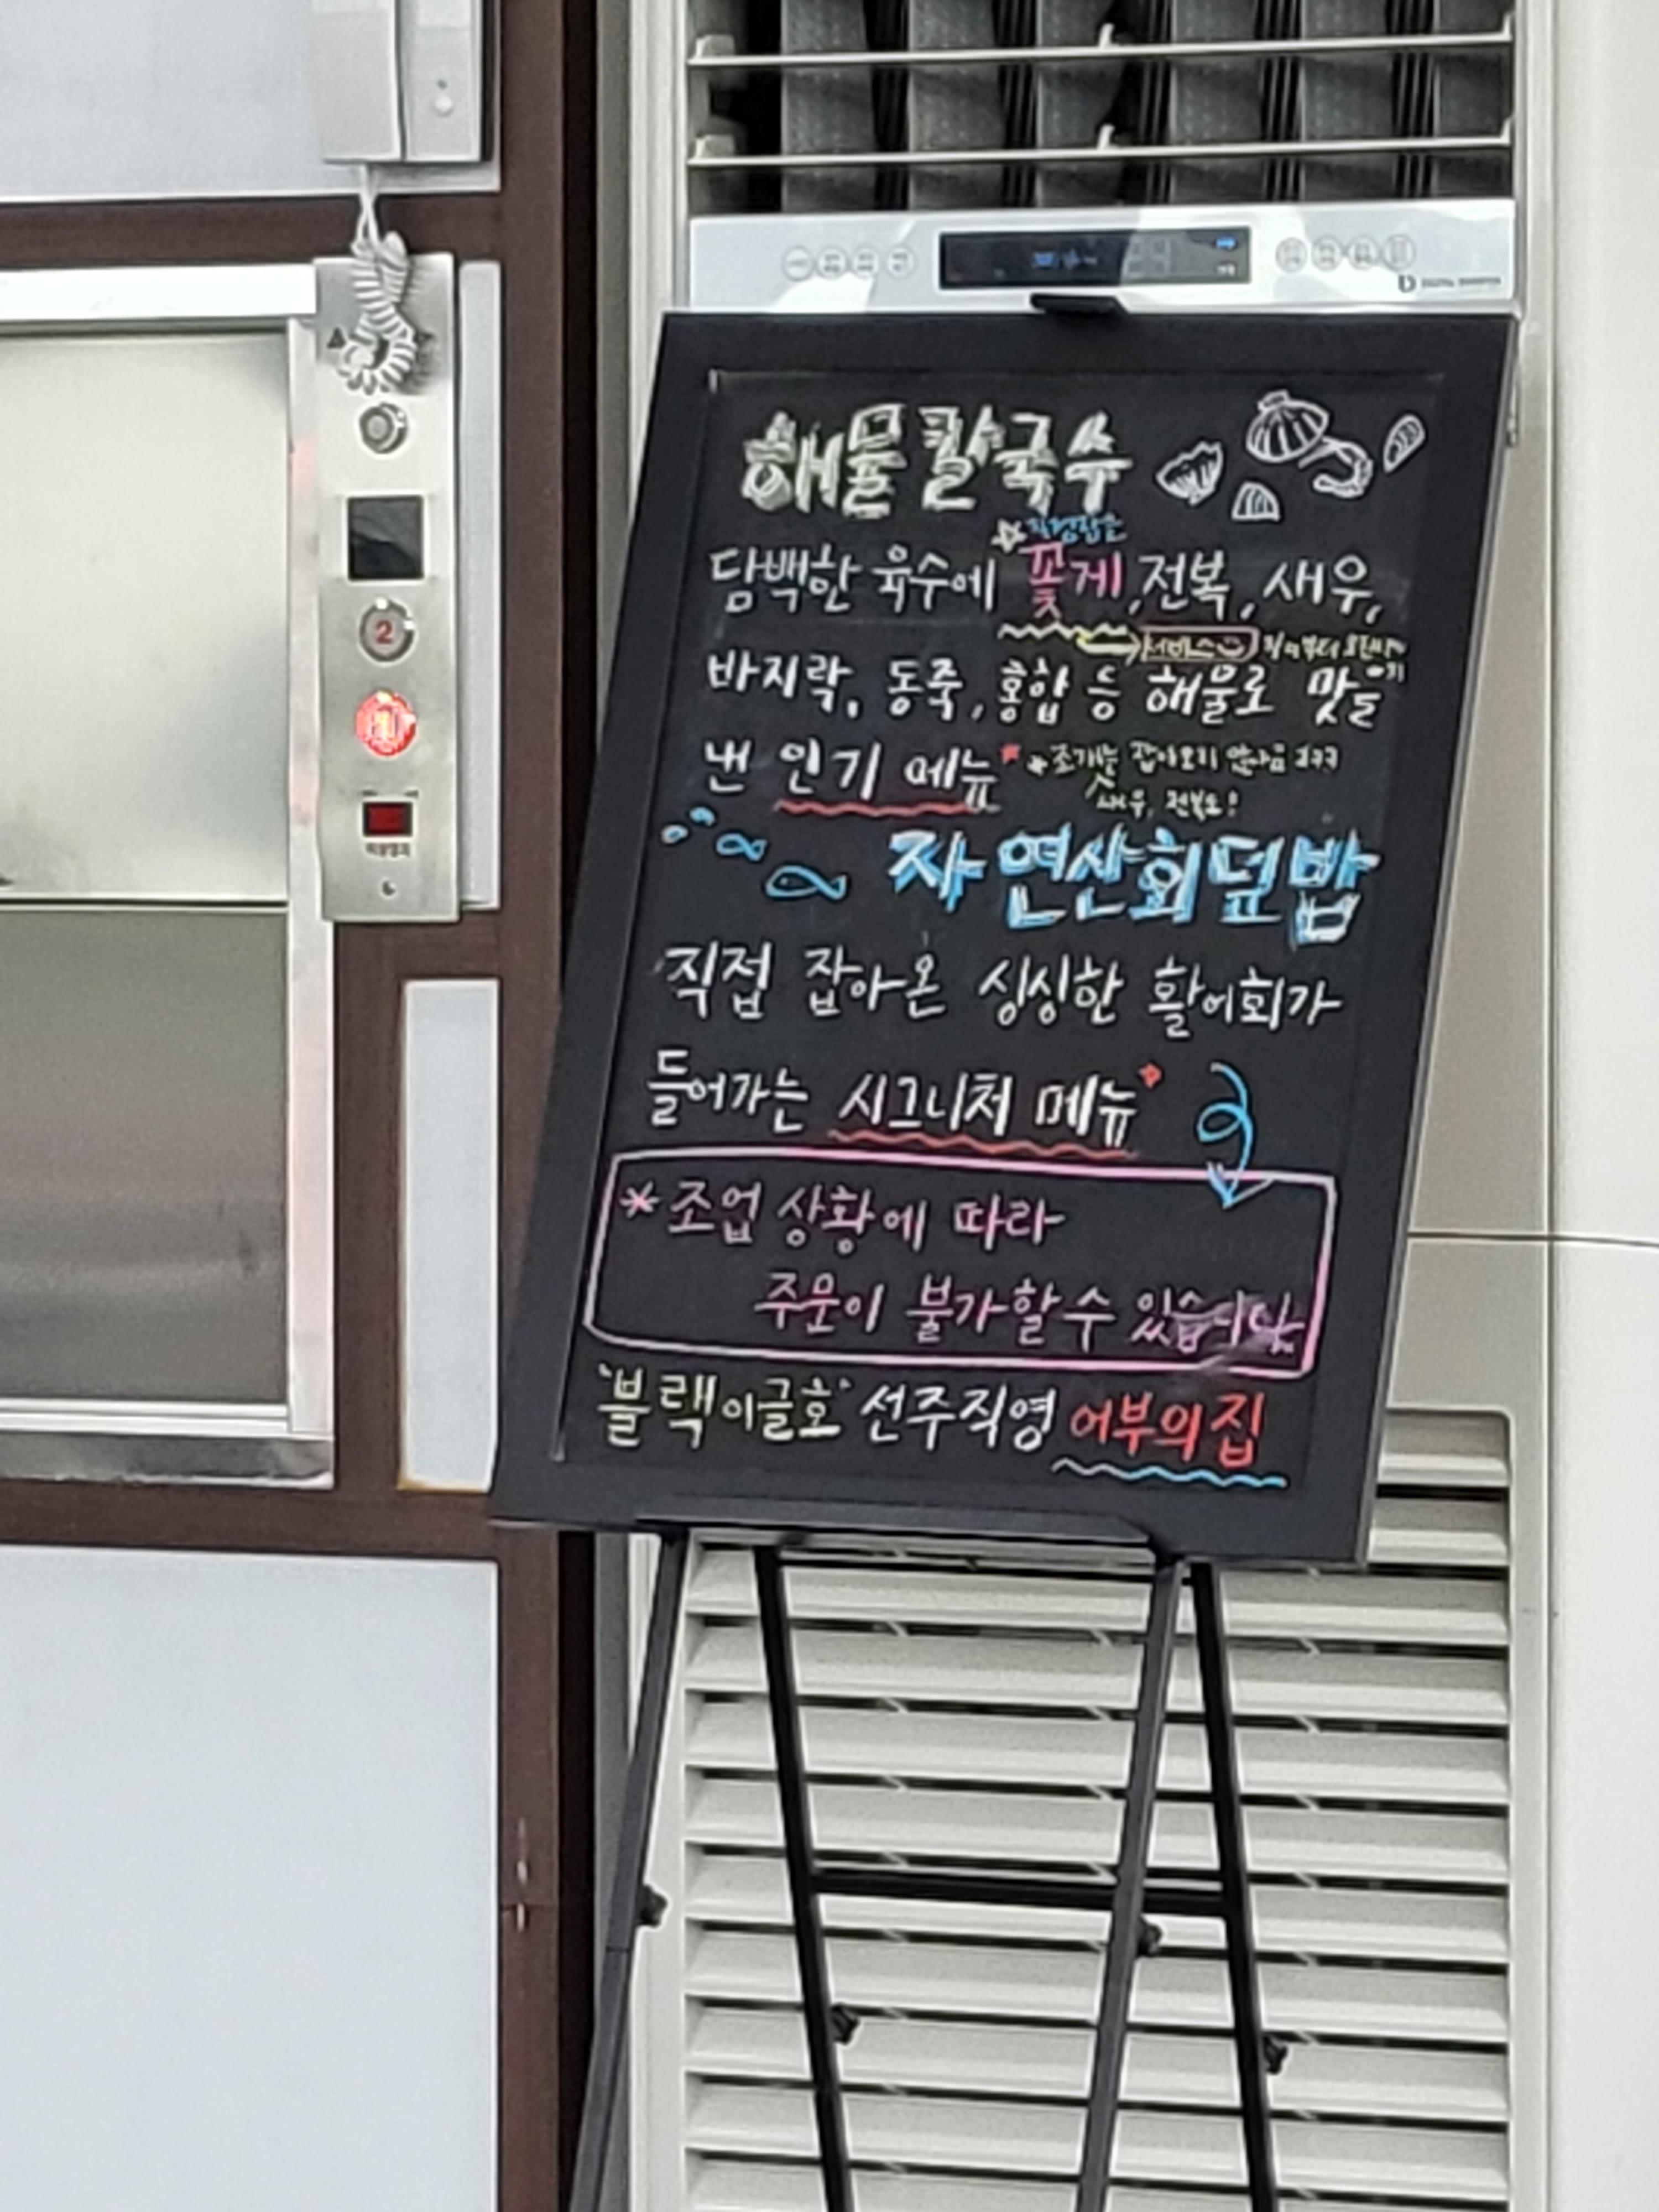 2
해물칼국수
직접잡은
담백한 육수에 꽃게, 전복, 새우,
서비스
바지락, 동죽, 홍합 등 해물로 맛을
낸 인기 메뉴 *조개는 잡아오지 않아요 ㅋㅋㅋ
새우, 전복도!
자연산회덮밥
직접 잡아온 싱싱한 활어회가
들어가는 시그니처 메뉴
*조업 상황에 따라
주문이 불가할 수 있습니다.
'블랙이글호' 선주직영 어부의 집